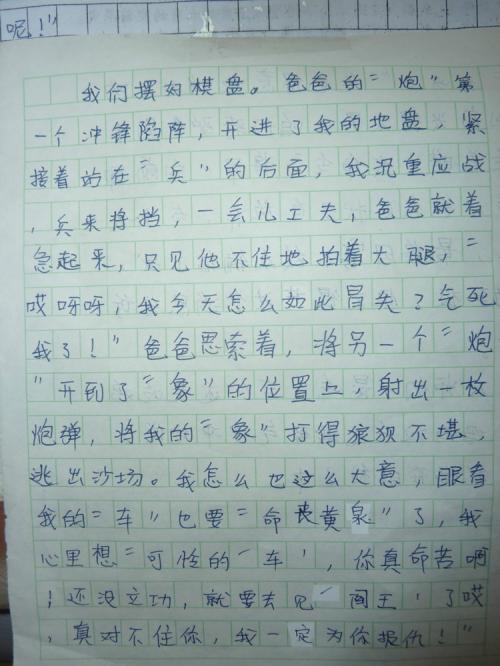 呢!"
我们摆好棋盘。爸爸的"炮"第
一个冲锋陷阵，开进了我的地盘，紧
接着站在"兵"的后面，我沉重应战
，兵来将挡，一会儿工夫，爸爸就着
急起来，只见他不住地拍着大腿，"
哎呀呀，我今天怎么如此冒失？气死
我了！"爸爸思索着，将另一个"炮
"开到了"象"的位置上，射出一枚
炮弹，将我的"象"打得狼狈不堪，
逃出沙场。我怎么也这么大意，眼看
我的"车"也要"命丧黄泉"了，我
心里想"可怜的'车'，你真命苦啊
！还没立功，就要去见'阎王'了哎
，真对不住你，我一定为你报仇！"